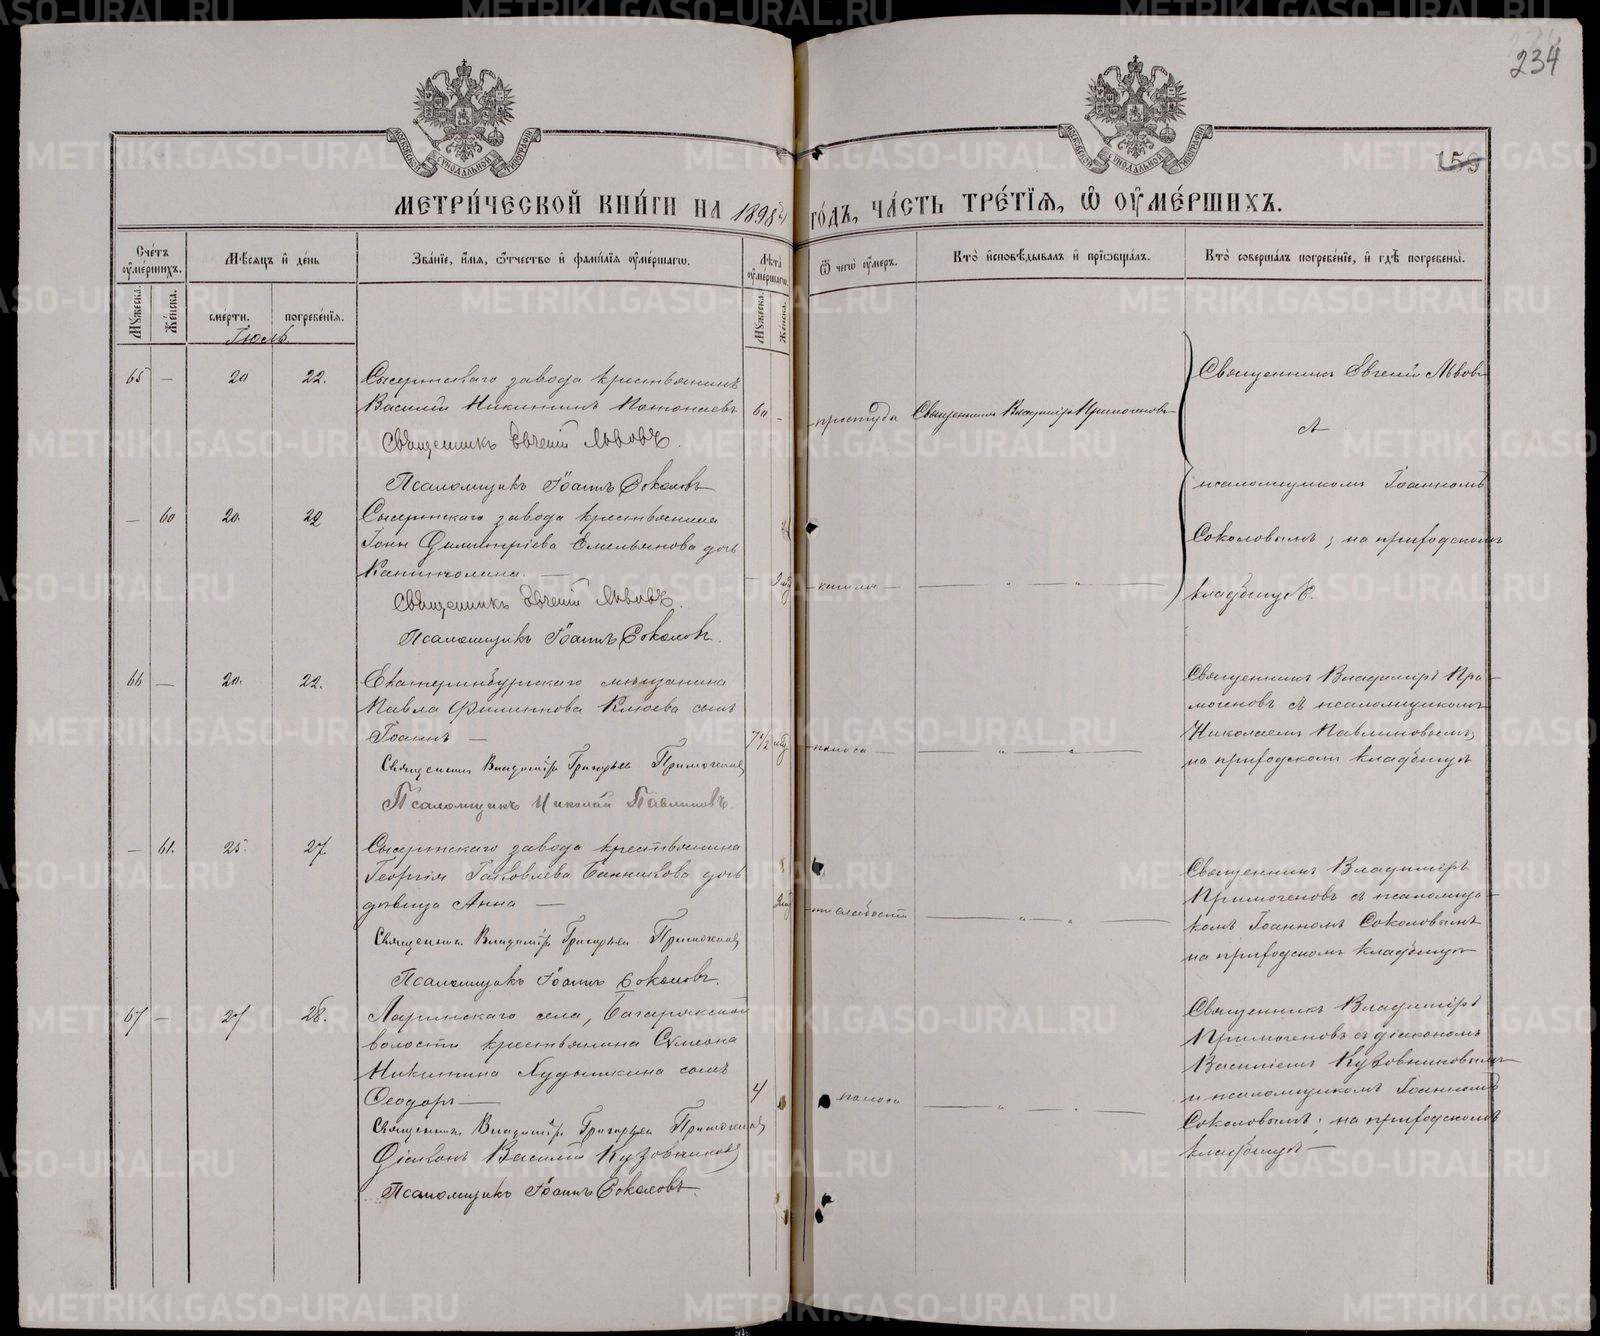 234
159
МЕТРИ́ЧЕСКОЙ КНИ́ГИ НА 1898й
ГО́ДЪ, ЧА́СТЬ ТРЕ́ТІЯ, Ѿ ОУ҆МЕ́РШИХЪ.
Сче́тъ оу҆ме́ршихъ.
Мꙋжеска.
Же́нска.
Мѣ́сяцъ и҆ де́нь
сме́рти.
погребе́нія.
Зва́ніе, и҆́мя, ѻ҆́тчество и҆ фами́лія оу҆ме́ршагѡ.
Лѣ́та оу҆ме́ршагѡ.
Мꙋжеска.
Же́нска.
Ѿ чегѡ̀ оу҆́меръ.
Кто̀ и҆сповѣ́дывалъ и҆ прїѡбща́лъ.
Кто̀ соверша́лъ погребе́ніе, и҆ гдѣ̀ погребены̀.
Іюль
65 — 20 22. Сысертскаго завода крестьянинъ
Василій Никитинъ 60 — простуда Священникъ Владиміръ Примогеновъ
Священникъ Евгеній Львовъ.
Псаломщикъ Іоаннъ Соколовъ
Священникъ Евгеній Львовъ
съ
псаломщикомъ Іоанномъ
Соколовымъ; на приходскомъ
кладбищѣ.
— 60 20. 22 Сысертскаго завода крестьянина
Димитріева Емельянова дочь
—
Священникъ Евгеній Львовъ.
Псаломщикъ Іоаннъ Соколовъ.
66 — 20. 22. Екатеринбургскаго мѣщанина
Павла Филиппова Клюева сынъ
Іоаннъ — 7 1/2 мѣс поноса — „ — „ —
Священникъ Владиміръ Григорьевъ Примогеновъ
Псаломщикъ Николай Павлиновъ.
Священникъ Владиміръ При-
могеновъ съ псаломщикомъ
Николаемъ Павлиновымъ,
на приходскомъ кладбищѣ
— 61. 25. 27. Сысертскаго завода крестьянина
Георгія Іаковлева Банникова дочь
дѣвица Анна — отъ слабости — „ — „ —
Священникъ Владиміръ Григорьевъ Примогеновъ
Псаломщикъ Іоаннъ Соколовъ.
Священникъ Владиміръ
Примогеновъ съ псаломщи-
комъ Іоанномъ Соколовымъ
на приходскомъ кладбищѣ
67 — 27 28. села, Багарякской
волости крестьянина Сѵмеона
Никитина Худышкина сынъ
Ѳеодоръ — 4 поноса — „ — „ —
Священникъ Владиміръ Григорьевъ Примогеновъ
Діаконъ Василій Кузовниковъ
Псаломщикъ Іоаннъ Соколовъ.
Священникъ Владиміръ
Примогеновъ съ діакономъ
Василіемъ Кузовниковымъ
и псаломщикомъ Іоанномъ
Соколовымъ; на приходскомъ
кладбищѣ —
METRIKI.GASO-URAL.RU